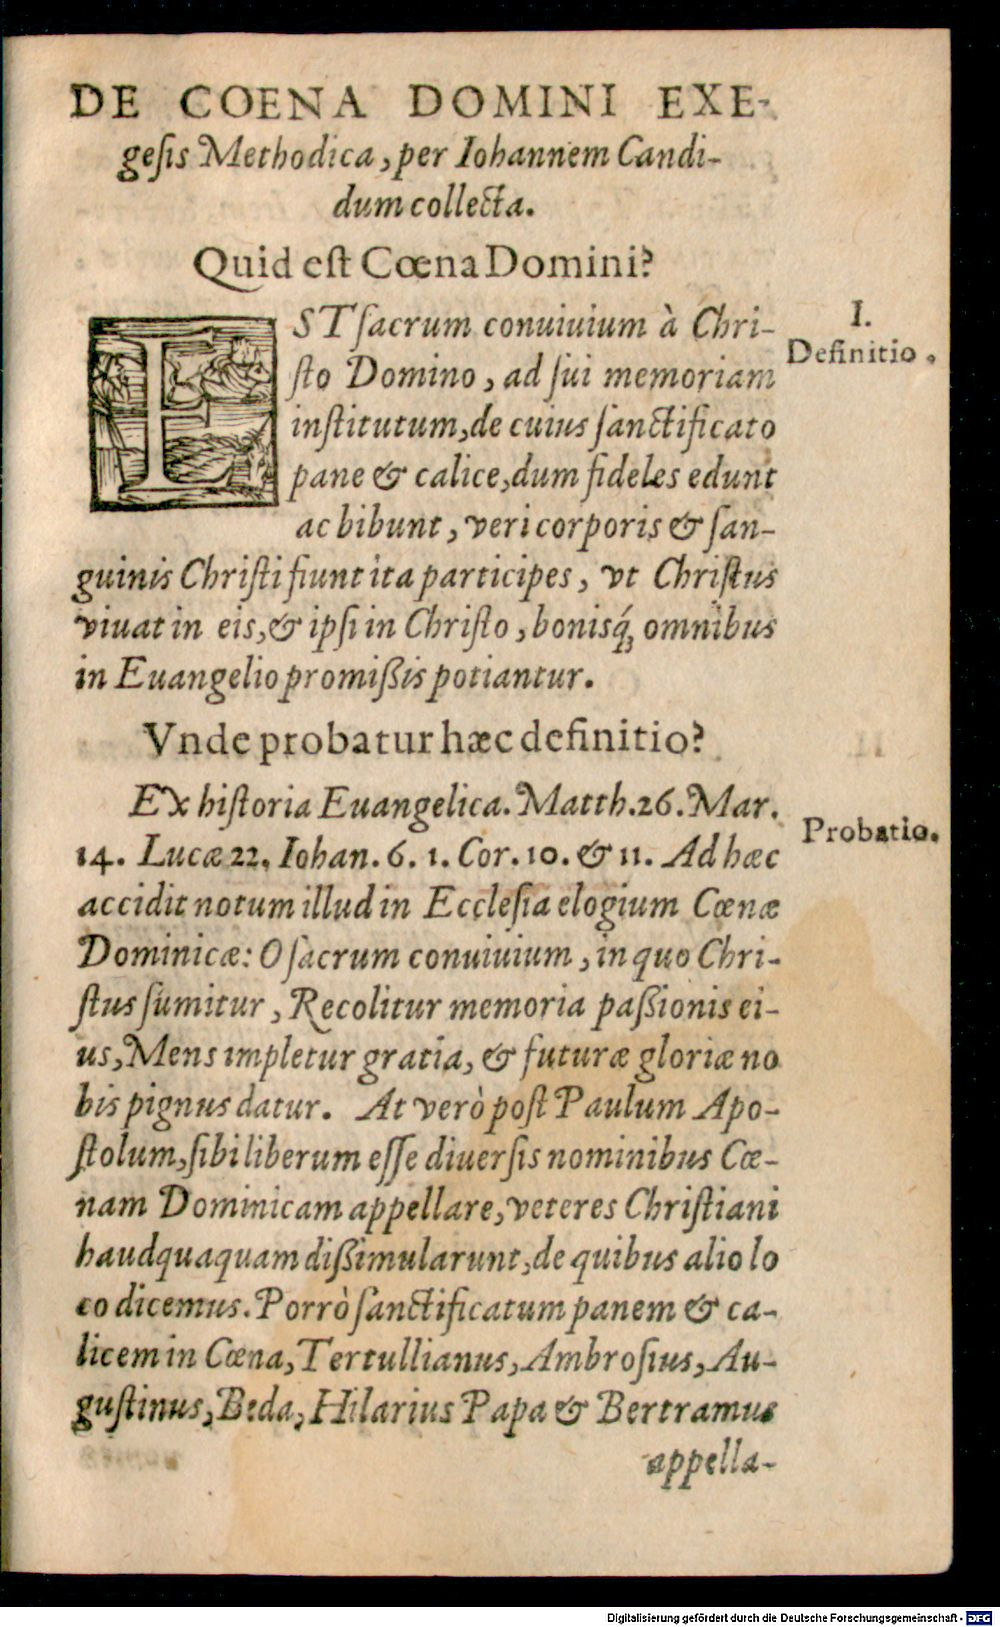 DE COENA DOMINI EXE-
gesis Methodica, per Iohannem Candi-
dum collecta.
Quid est Cœna Domini?
EST sacrum conuiuium à Chri-
I.
Definitio.
sto Domino, ad sui memoriam
institutum, de cuius sanctificato
pane & calice, dum fideles edunt
ac bibunt, veri corporis & san-
guinis Christi fiunt ita participes, vt Christus
viuat in eis, & ipsi in Christo, bonisq́; omnibus
in Euangelio promißis potiantur.
Vnde probatur hæc definitio?
Ex historia Euangelica. Matth. 26. Mar.
Probatio.
14. Lucæ 22. Iohan. 6. 1. Cor. 10. & 11. Ad hæc
accidit notum illud in Ecclesia elogium Cœnæ
Dominicæ: O sacrum conuiuium, in quo Chri-
stus sumitur, Recolitur memoria paßionis ei-
us, Mens impletur gratia, & futuræ gloriæ no
bis pignus datur. At verò post Paulum Apo-
stolum, sibi liberum esse diuersis nominibus Cœ-
nam Dominicam appellare, veteres Christiani
haudquaquam dißimularunt, de quibus alio lo
co dicemus. Porrò sanctificatum panem & ca-
licem in Cœna, Tertullianus, Ambrosius, Au-
gustinus, Beda, Hilarius Papa & Bertramus
appella-
Digitalisierung gefördert durch die Deutsche Forschungsgemeinschaft - DFG